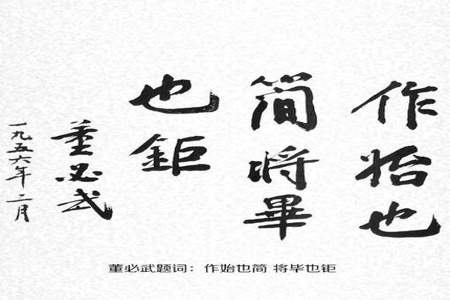 作始也
简將畢
也鉅
董必武
一九五六年二月
董必武题词：作始也简 将毕也钜